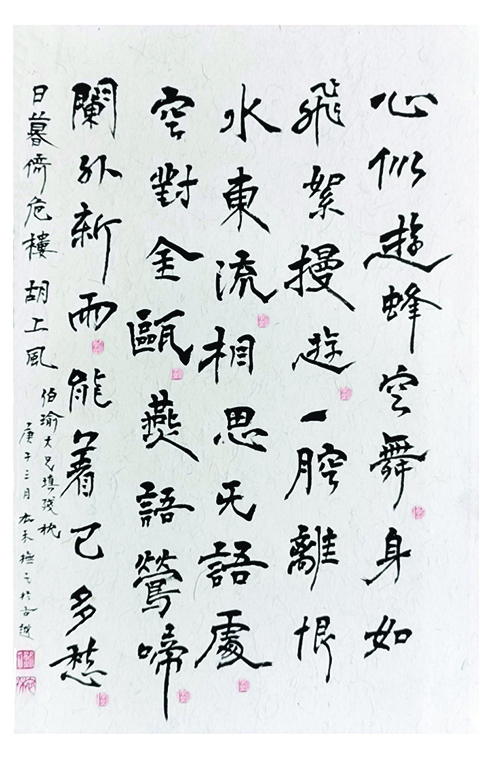 心似遊蜂空舞身如
飛絮慢遊一腔離恨
水東流相思无語處
空對金甌燕語鶯啼
闌外新雨能着已多愁
日暮倚危樓 胡上風
伯瑜大兄填殘枕
庚子三月